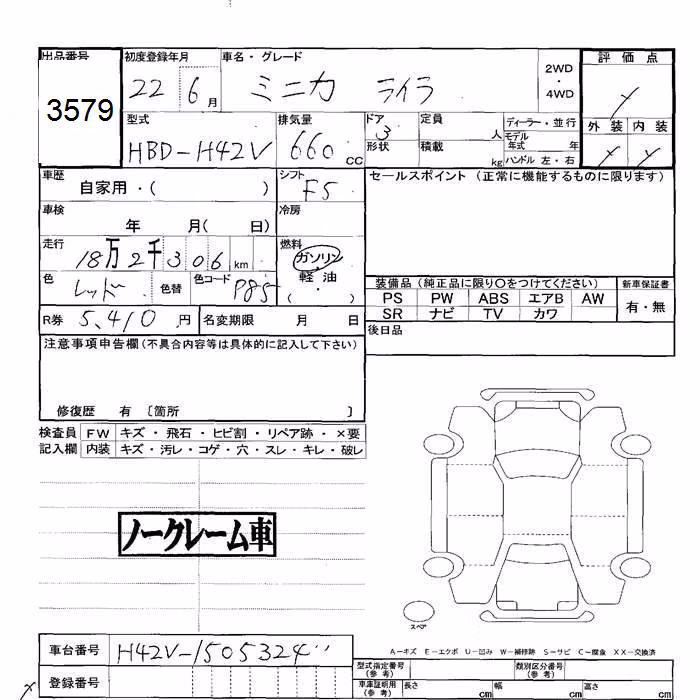 出品番号 初度登録年月 車名・グレード 2WD・4WD 評価点
3579 22 6月 ミニカ ライラ
型式 排気量 ドア 定員 ディーラー・並行 外装 内装
HBD-H42V 660cc 3 形状 積載 人 kg モデル年式 年 ハンドル 左・右
車歴 シフト セールスポイント（正常に機能するものに限ります）
自家用・（ ） F5
車検 冷房
年 月（ 日）
走行 燃料
18万2千306km ガソリン・軽油
（ ・ ）
色 レッド 色替 色コード P85
装備品（純正品に限り○をつけてください） 新車保証書
PS PW ABS エアB AW 有・無
SR ナビ TV カワ
R券 5,410円 名変期限 月 日 後日品
注意事項申告欄（不具合内容等は具体的に記入して下さい）
修復歴 有 〔箇所 〕
検査員 FW キズ・飛石・ヒビ割・リペア跡・×要
記入欄 内装 キズ・汚レ・コゲ・穴・スレ・キレ・破レ
ノークレーム車
スペア
A－キズ E－エクボ U－凹み W－補修跡 S－サビ C－腐食 XX－交換済
車台番号 H42V-1505324
登録番号
型式指定番号（参考） 類別区分番号（参考）
車庫証明用（参考） 長さ cm 幅 cm 高さ cm